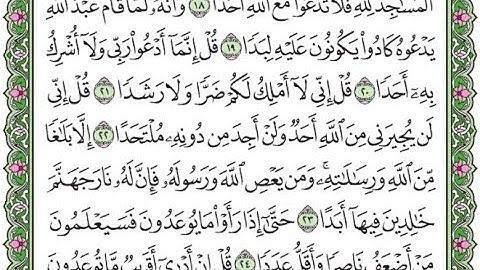 ٱلْمَسَٰجِدَ لِلَّهِ فَلَا تَدْعُوا۟ مَعَ ٱللَّهِ أَحَدًا ١٨ وَأَنَّهُۥ لَمَّا قَامَ عَبْدُ ٱللَّهِ
يَدْعُوهُ كَادُوا۟ يَكُونُونَ عَلَيْهِ لِبَدًا ١٩ قُلْ إِنَّمَآ أَدْعُوا۟ رَبِّى وَلَآ أُشْرِكُ
بِهِۦٓ أَحَدًا ٢٠ قُلْ إِنِّى لَآ أَمْلِكُ لَكُمْ ضَرًّا وَلَا رَشَدًا ٢١ قُلْ إِنِّى
لَن يُجِيرَنِى مِنَ ٱللَّهِ أَحَدٌ وَلَنْ أَجِدَ مِن دُونِهِۦ مُلْتَحَدًا ٢٢ إِلَّا بَلَٰغًا
مِّنَ ٱللَّهِ وَرِسَٰلَٰتِهِۦ ۚ وَمَن يَعْصِ ٱللَّهَ وَرَسُولَهُۥ فَإِنَّ لَهُۥ نَارَ جَهَنَّمَ
خَٰلِدِينَ فِيهَآ أَبَدًا ٢٣ حَتَّىٰٓ إِذَا رَأَوْا۟ مَا يُوعَدُونَ فَسَيَعْلَمُونَ
مَنْ أَضْعَفُ نَاصِرًا وَأَقَلُّ عَدَدًا ٢٤ قُلْ إِنْ أَدْرِىٓ أَقَرِيبٌ مَّا تُوعَدُونَ